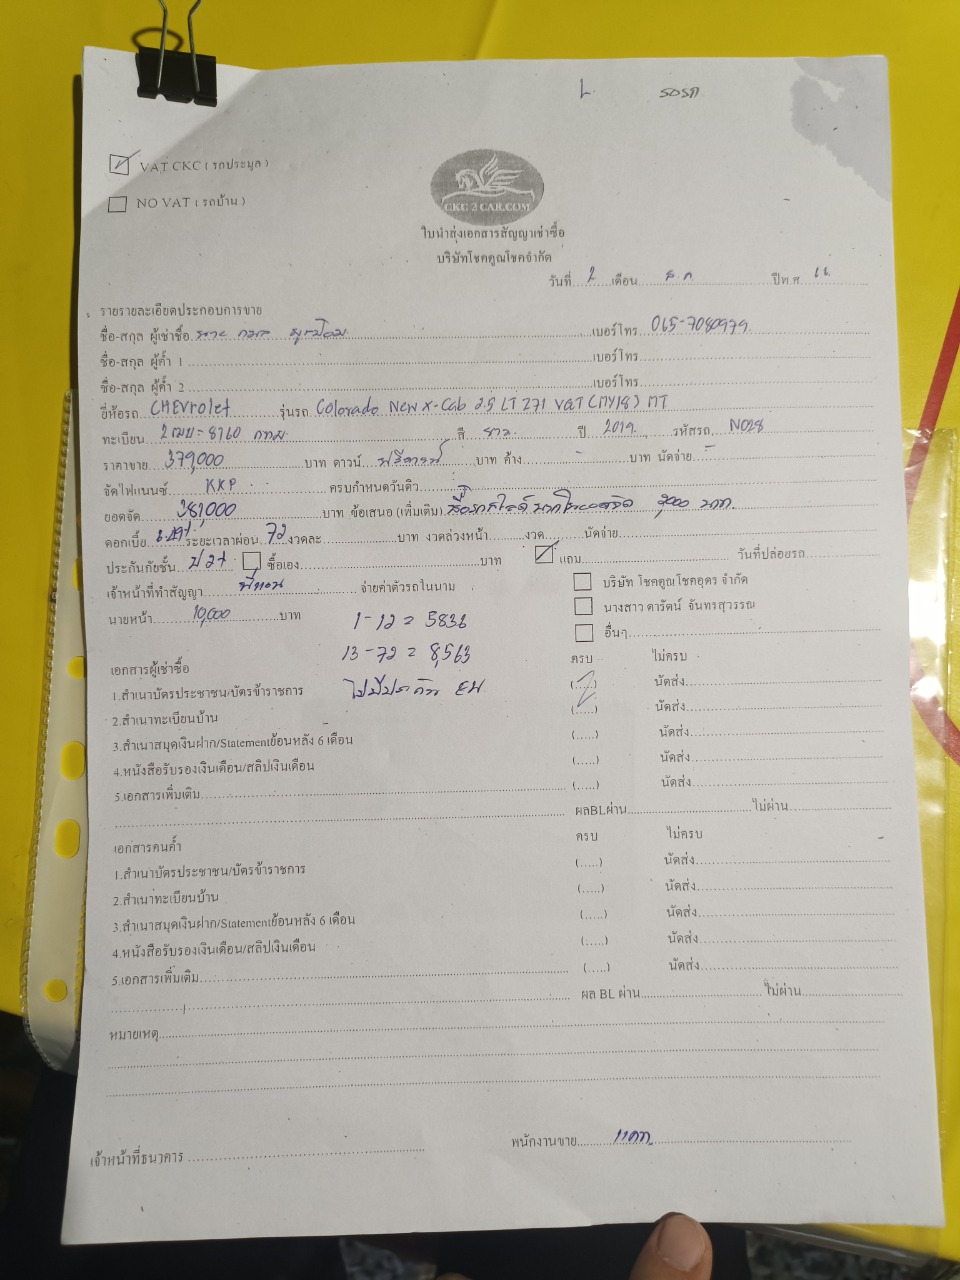 รอรถ
VAT CKC ( รถประมูล )
NO VAT ( รถบ้าน )
CKC 2 CAR.COM
ใบนำส่งเอกสารสัญญาเช่าซื้อ
บริษัทโชคคูณโชคจำกัด
วันที่ 2 เดือน ส.ค ปีพ.ศ. 66
รายรายละเอียดประกอบการขาย
ชื่อ-สกุล ผู้เช่าซื้อ นาย กมล เบอร์โทร 065-7080979
ชื่อ-สกุล ผู้ค้ำ 1 เบอร์โทร
ชื่อ-สกุล ผู้ค้ำ 2 เบอร์โทร
ยี่ห้อรถ CHEVrolet รุ่นรถ Colorado New X-Cab 2.5 LT Z71 VGT (MY18) MT
ทะเบียน 2ฒบ-8760 กทม. สี ขาว ปี 2019 รหัสรถ N028
ราคาขาย 379,000 บาท ดาวน์ ฟรีดาวน์ บาท ค้าง - บาท นัดจ่าย -
จัดไฟแนนซ์ KKP ครบกำหนดวันดิว
ยอดจัด 381,000 บาท ข้อเสนอ (เพิ่มเติม)
ดอกเบี้ย ระยะเวลาผ่อน 72 งวดละ บาท งวดล่วงหน้า งวด นัดจ่าย
ประกันภัยชั้น ป2+ ซื้อเอง บาท แถม วันที่ปล่อยรถ
เจ้าหน้าที่ทำสัญญา จ่ายค่าตัวรถในนาม
บริษัท โชคคูณโชคอุดร จำกัด
นายหน้า 10,000 บาท
นางสาว ดารัตน์ จันทรสุวรรณ
อื่นๆ
1-12 = 5838
13-72 = 8,563
ไม่มีประกัน EW
เอกสารผู้เช่าซื้อ ครบ ไม่ครบ
1.สำเนาบัตรประชาชน/บัตรข้าราชการ (.....) นัดส่ง
2.สำเนาทะเบียนบ้าน (.....) นัดส่ง
3.สำเนาสมุดเงินฝาก/Statementย้อนหลัง 6 เดือน (.....) นัดส่ง
4.หนังสือรับรองเงินเดือน/สลิปเงินเดือน (.....) นัดส่ง
5.เอกสารเพิ่มเติม (.....) นัดส่ง
ผลBLผ่าน ไม่ผ่าน
เอกสารคนค้ำ ครบ ไม่ครบ
1.สำเนาบัตรประชาชน/บัตรข้าราชการ (.....) นัดส่ง
2.สำเนาทะเบียนบ้าน (.....) นัดส่ง
3.สำเนาสมุดเงินฝาก/Statementย้อนหลัง 6 เดือน (.....) นัดส่ง
4.หนังสือรับรองเงินเดือน/สลิปเงินเดือน (.....) นัดส่ง
5.เอกสารเพิ่มเติม (.....) นัดส่ง
ผล BL ผ่าน ไม่ผ่าน
หมายเหตุ
พนักงานขาย
เจ้าหน้าที่ธนาคาร